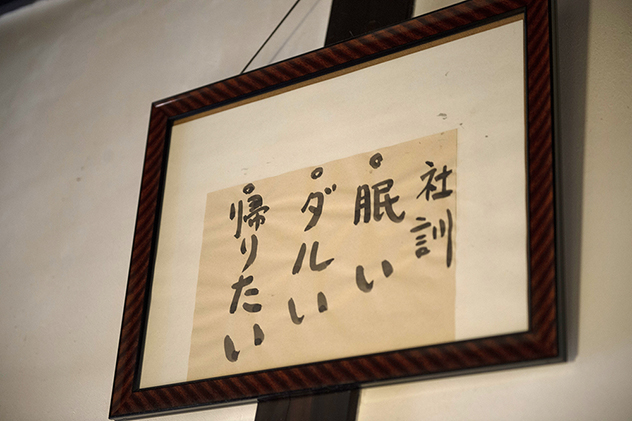 社訓
○眠い
○ダルい
○帰りたい